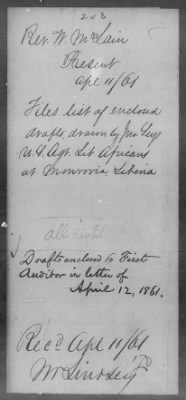 203
Rev. W. McLain
Present
Apl 11/61
Files list of enclosed
drafts, drawn by Jno Seys
U.S. Agt. Lib Africans
at Monrovia, Liberia
all right
Drafts enclosed to First
Auditor in letter of
April 12, 1861.
Recd Apl 11/61